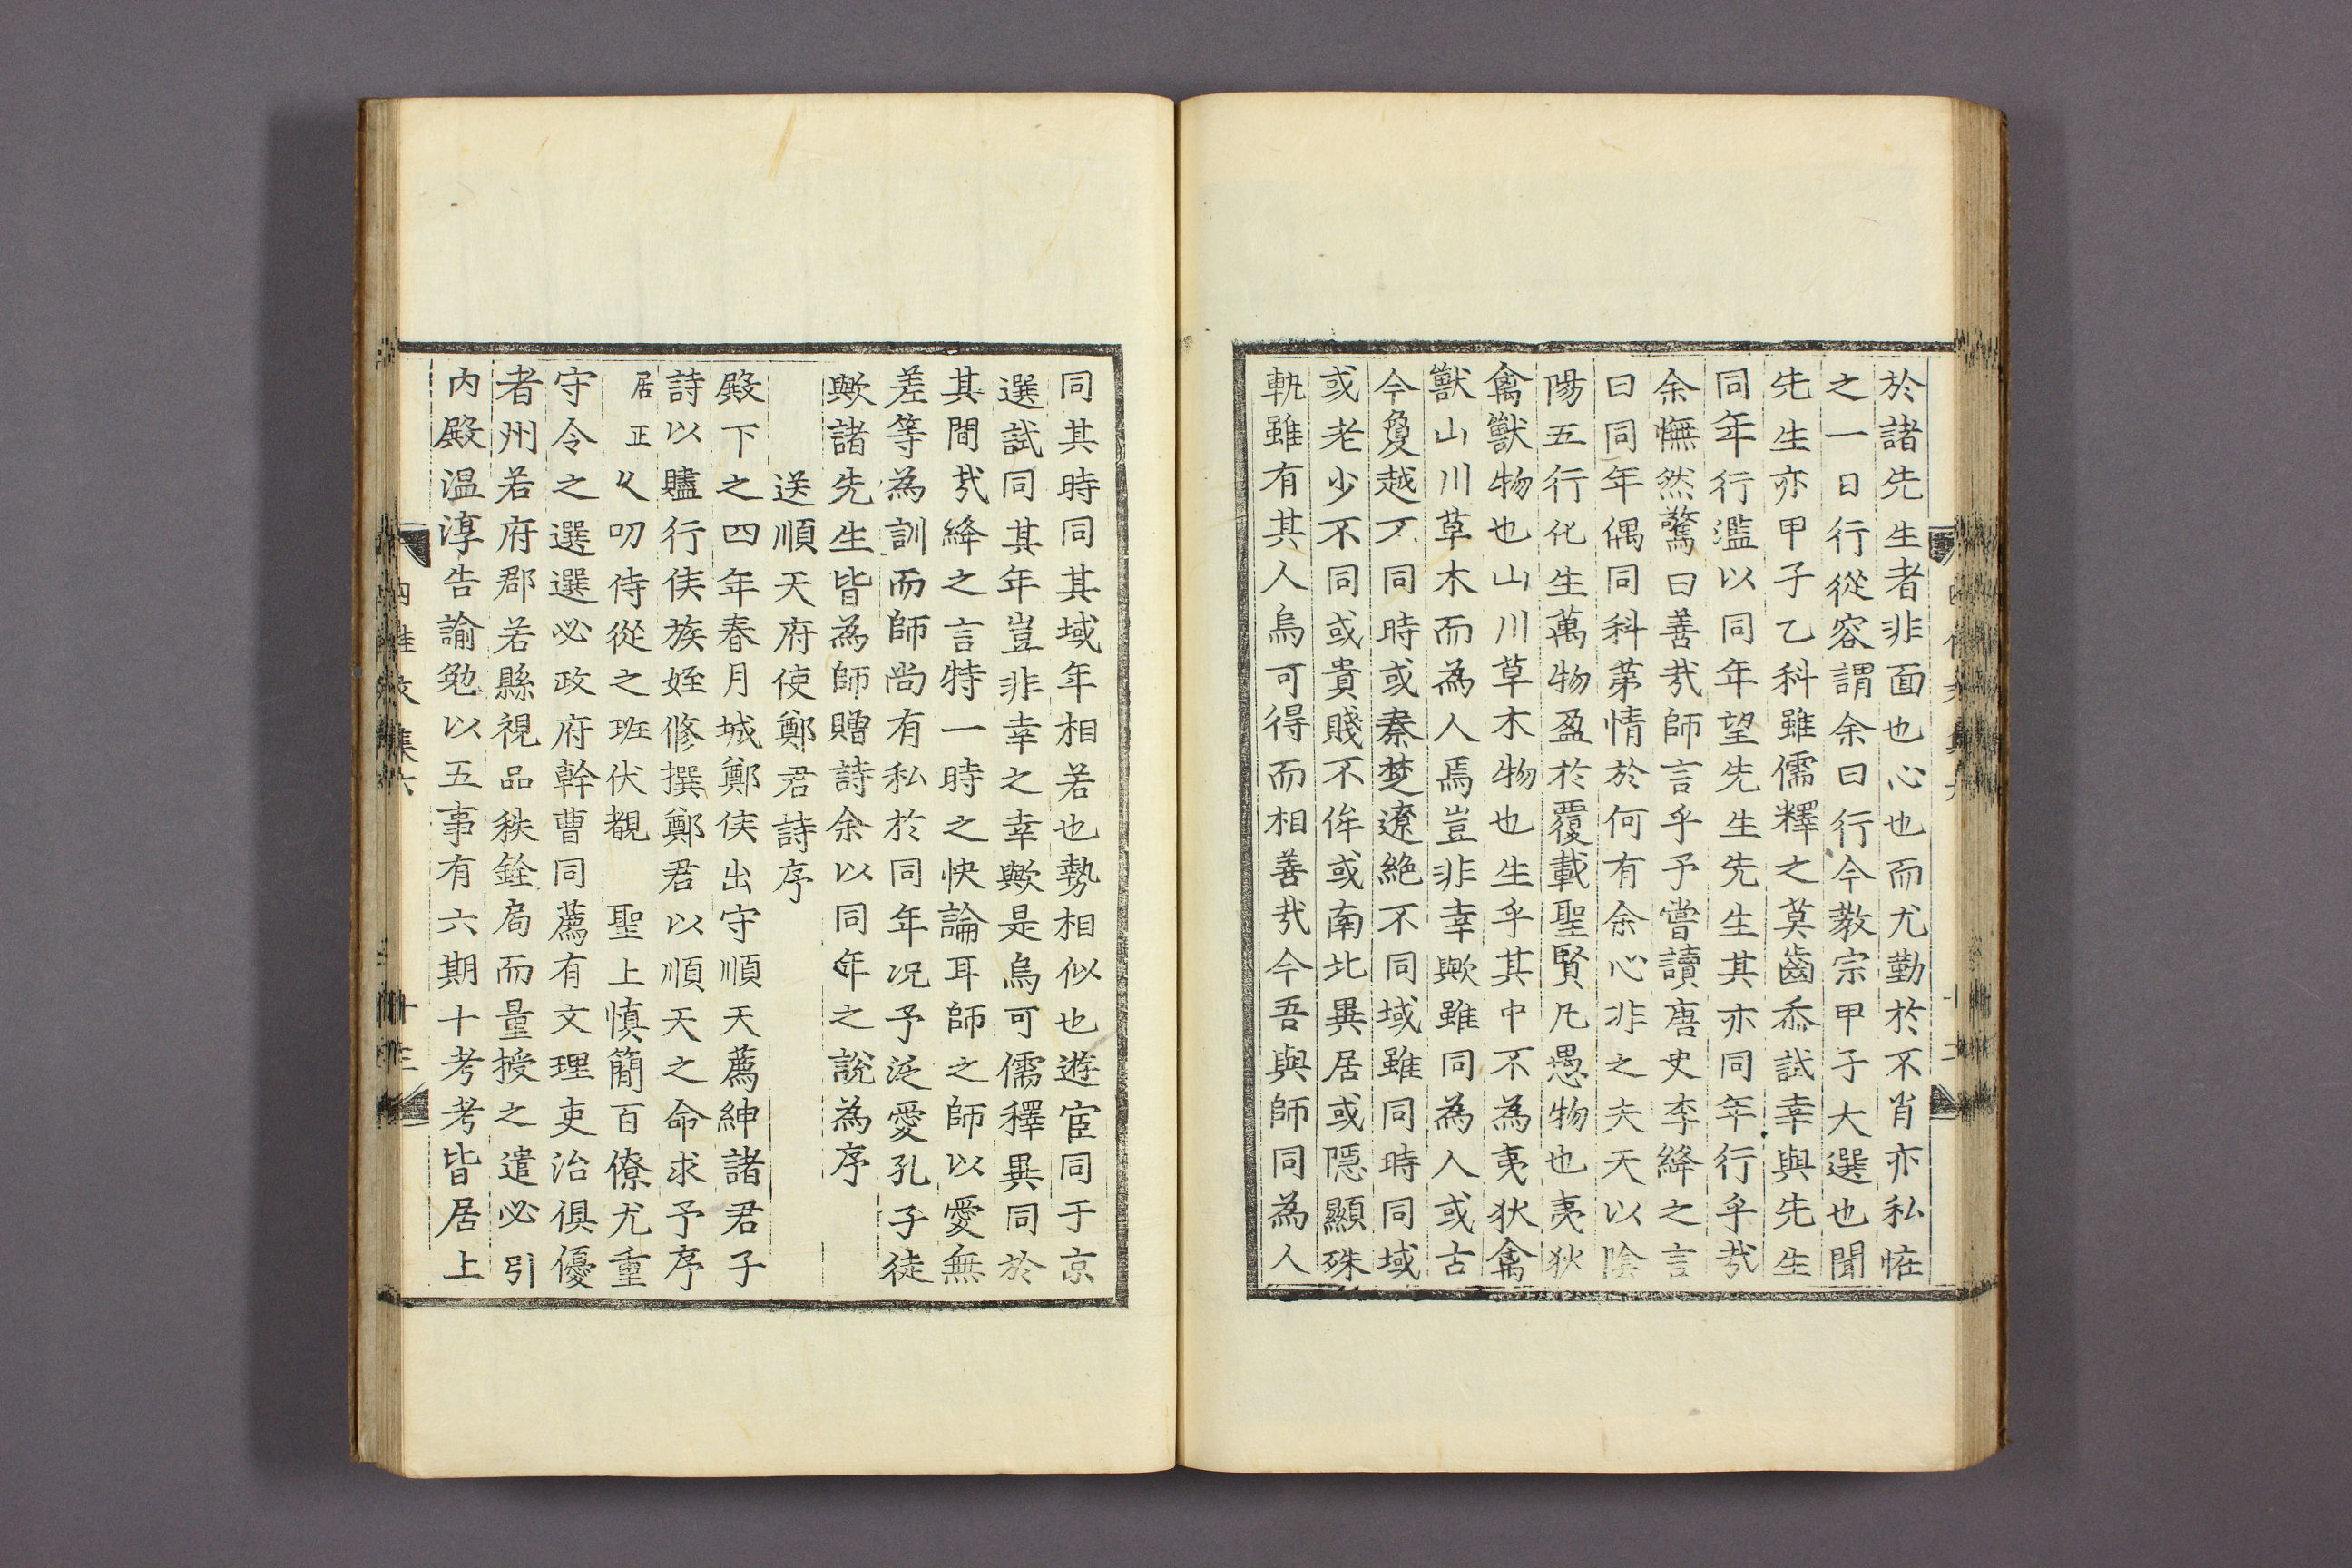 於諸先生者非面也心也而尤勤於不肖亦私恠
之一日行從容謂余曰行今敎宗甲子大選也聞
先生亦甲子乙科雖儒釋之莫齒忝試幸與先生
同年行濫以同年望先生先生其亦同年行乎㢤
余憮然驚曰善㢤師言乎予嘗讀唐史李絳之言
曰同年偶同科苐情於何有余心非之夫天以陰
陽五行化生萬物盈於覆載聖賢凡愚物也夷狄
禽獸物也山川草木物也生乎其中不為夷狄禽
獸山川草木而為人焉豈非幸歟雖同為人或古
今敻越不同時或秦楚遼絶不同域雖同時同域
或老少不同或貴賤不侔或南北異居或隱顯殊
軌雖有其人烏可得而相善㢤今吾與師同為人
同其時同其域年相若也勢相似也遊宦同于京
選試同其年豈非幸之幸歟是烏可儒釋異同於
其間㢤絳之言特一時之快論耳師之師以愛無
差等為訓而師尚有私於同年况予泛愛孔子徒
歟諸先生皆為師贈詩余以同年之說為序
送順天府使鄭君詩序
殿下之四年春月城鄭侯出守順天薦紳諸君子
詩以贐行侯族姪修撰鄭君以順天之命求予序
居正久叨侍從之班伏覩 聖上慎簡百僚尤重
守令之選選必政府幹曹同薦有文理吏治俱優
者州若府郡若縣視品秩銓局而量授之遣必引
內殿温淳告諭勉以五事有六期十考考皆居上
四佳文集六
十三